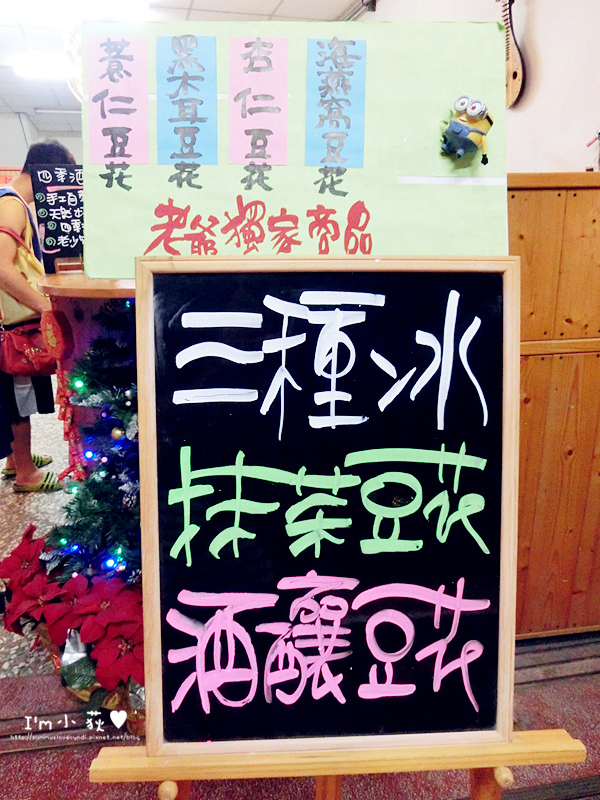 薏仁豆花
黑木耳豆花
杏仁豆花
海燕窩豆花
老爺獨家商品
四季酒
手工白
天然
四季
老少
三種冰
抹茶豆花
酒釀豆花
I'm 小荻♥